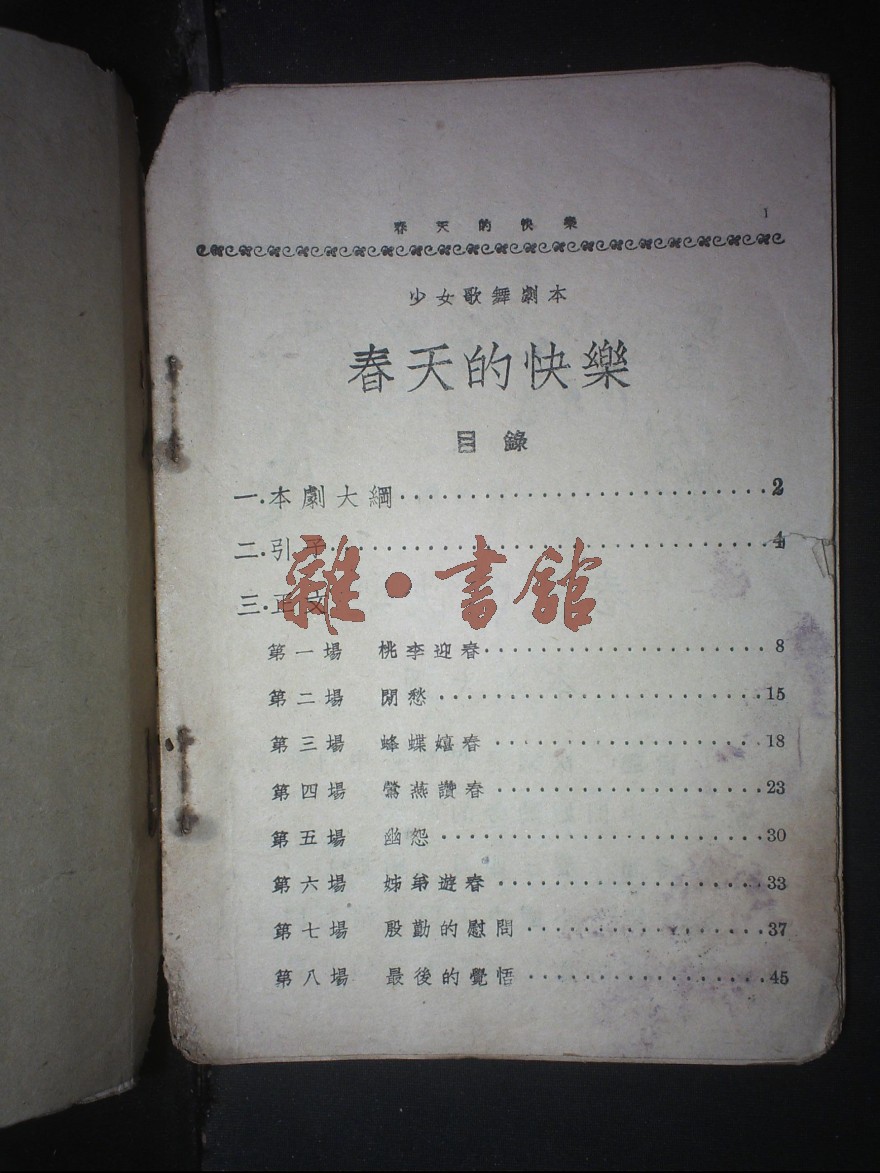 春天的快樂 1
少女歌舞劇本
春天的快樂
目錄
一.本劇大綱 2
二.引子 4
三.正文
雜·書館
第一場 桃李迎春 8
第二場 閒愁 15
第三場 蜂蝶嬉春 18
第四場 鶯燕讚春 23
第五場 幽怨 30
第六場 姊弟遊春 33
第七場 殷勤的慰問 37
第八場 最後的覺悟 45